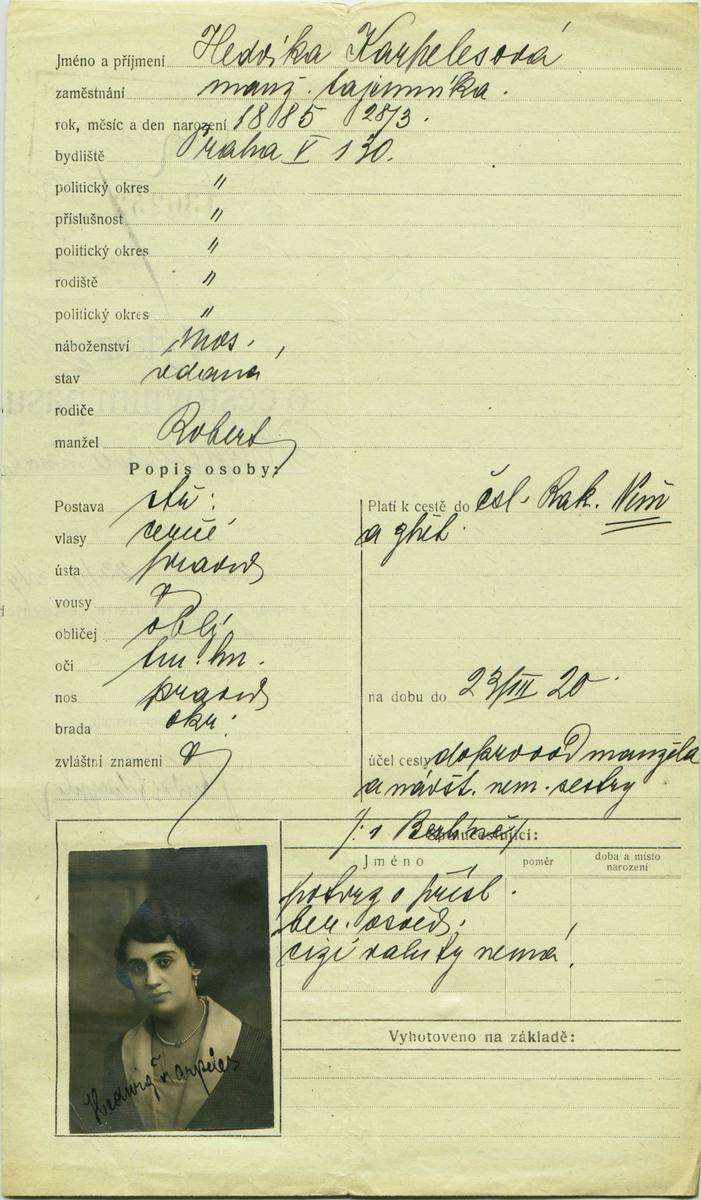 Jméno a příjmení Hedvika Karpelesová
zaměstnání manž. tajemníka.
rok, měsíc a den narození 1885 28/3.
bydliště Praha V 130.
politický okres "
příslušnost "
politický okres "
rodiště "
politický okres "
náboženství mos.
stav vdaná
rodiče
manžel Robert
Popis osoby:
Postava stř:
vlasy černé
ústa pravid
vousy
obličej oblý
oči tm. hn.
nos pravid
brada okr:
zvláštní znamení
Platí k cestě do čsl. Rak. Něm
a zpět.
na dobu do 23/III 20.
účel cesty doprovod manžela
a návšt. nem. sestry
/: v Berlíně/
Spoluúčastníci:
Jméno poměr doba a místo narození
potvrz o přísl.
ber. osvěd.
cizí valuty nemá.
Vyhotoveno na základě:
Hedwig Karpeles